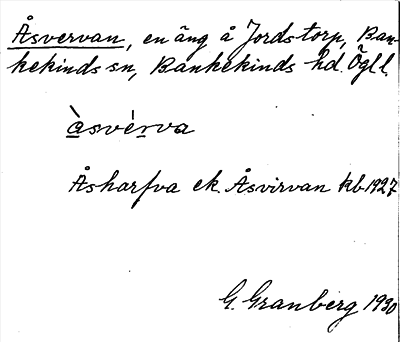 Åsvervan, en äng å Jordstorp, Ban-
kekinds sn, Bankekinds hd. Ögl.
àsvérva
Åsharfva ek. Åsvirvan kb 1927
G. Granberg 1930